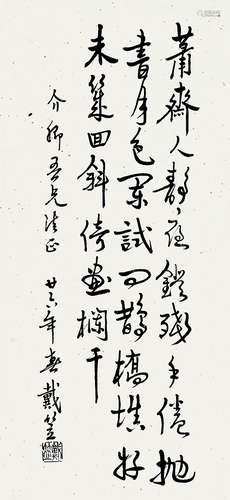 蕭齋人靜夜鐙殘手倦抛
書月色闌試問鵲橋填好
未幾回斜倚畫欄干
介卿吾兄法正 廿六年春戴笠